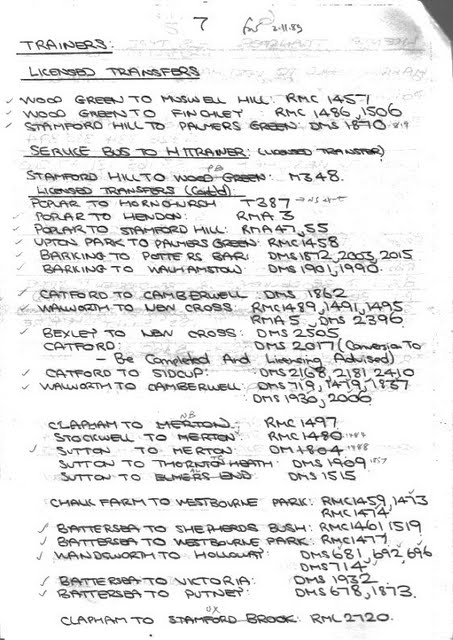 7 2.11.83
TRAINERS:
LICENSED TRANSFERS
✓ WOOD GREEN TO MUSWELL HILL: RMC 1457
✓ WOOD GREEN TO FINCHLEY RMC 1486, 1506
✓ STAMFORD HILL TO PALMERS GREEN: DMS 1870
SERVICE BUS TO H/TRAINER: (LICENSED TRANSFER)
PB
STAMFORD HILL TO WOOD GREEN: M348.
LICENSED TRANSFERS (Cont'd):
POPLAR TO HORNCHURCH T387
✓ POPLAR TO HENDON: RMA 3
✓ POPLAR TO STAMFORD HILL: RMA 47, 55
✓ UPTON PARK TO PALMERS GREEN: RMC1458
✓ BARKING TO POTTERS BAR: DMS1872, 2003, 2015
✓ BARKING TO WALTHAMSTOW: DMS 1901, 1990.
✓ CATFORD TO CAMBERWELL DMS 1862
✓ WALWORTH TO NEW CROSS: RMC1489, 1491, 1495
RMA 5, DMS 2396
✓ BEXLEY TO NEW CROSS: DMS 2505
CATFORD: DMS 2017 (Conversion To
- Be Completed And Licensing Advised)
✓ CATFORD TO SIDCUP: DMS 2168, 2181, 2410
✓ WALWORTH TO CAMBERWELL: DMS 719, 1479, 1837
DMS 1930, 2006
NB
CLAPHAM TO MERTON: RMC 1497
STOCKWELL TO MERTON: RMC 1480
✓ SUTTON TO MERTON: DM 1804
SUTTON TO THORNTON HEATH: DMS 1909
SUTTON TO ELMERS END: DMS 1515
CHALK FARM TO WESTBOURNE PARK: RMC1459, 1473
RMC 1474
✓ BATTERSEA TO SHEPHERDS BUSH: RMC1461, 1519
✓ BATTERSEA TO WESTBOURNE PARK: RMC1477
✓ WANDSWORTH TO HOLLOWAY: DMS 681, 692, 696
DMS 714
✓ BATTERSEA TO VICTORIA: DMS 1932
✓ BATTERSEA TO PUTNEY: DMS 678, 1873.
UX
CLAPHAM TO STAMFORD BROOK: RML 2720.